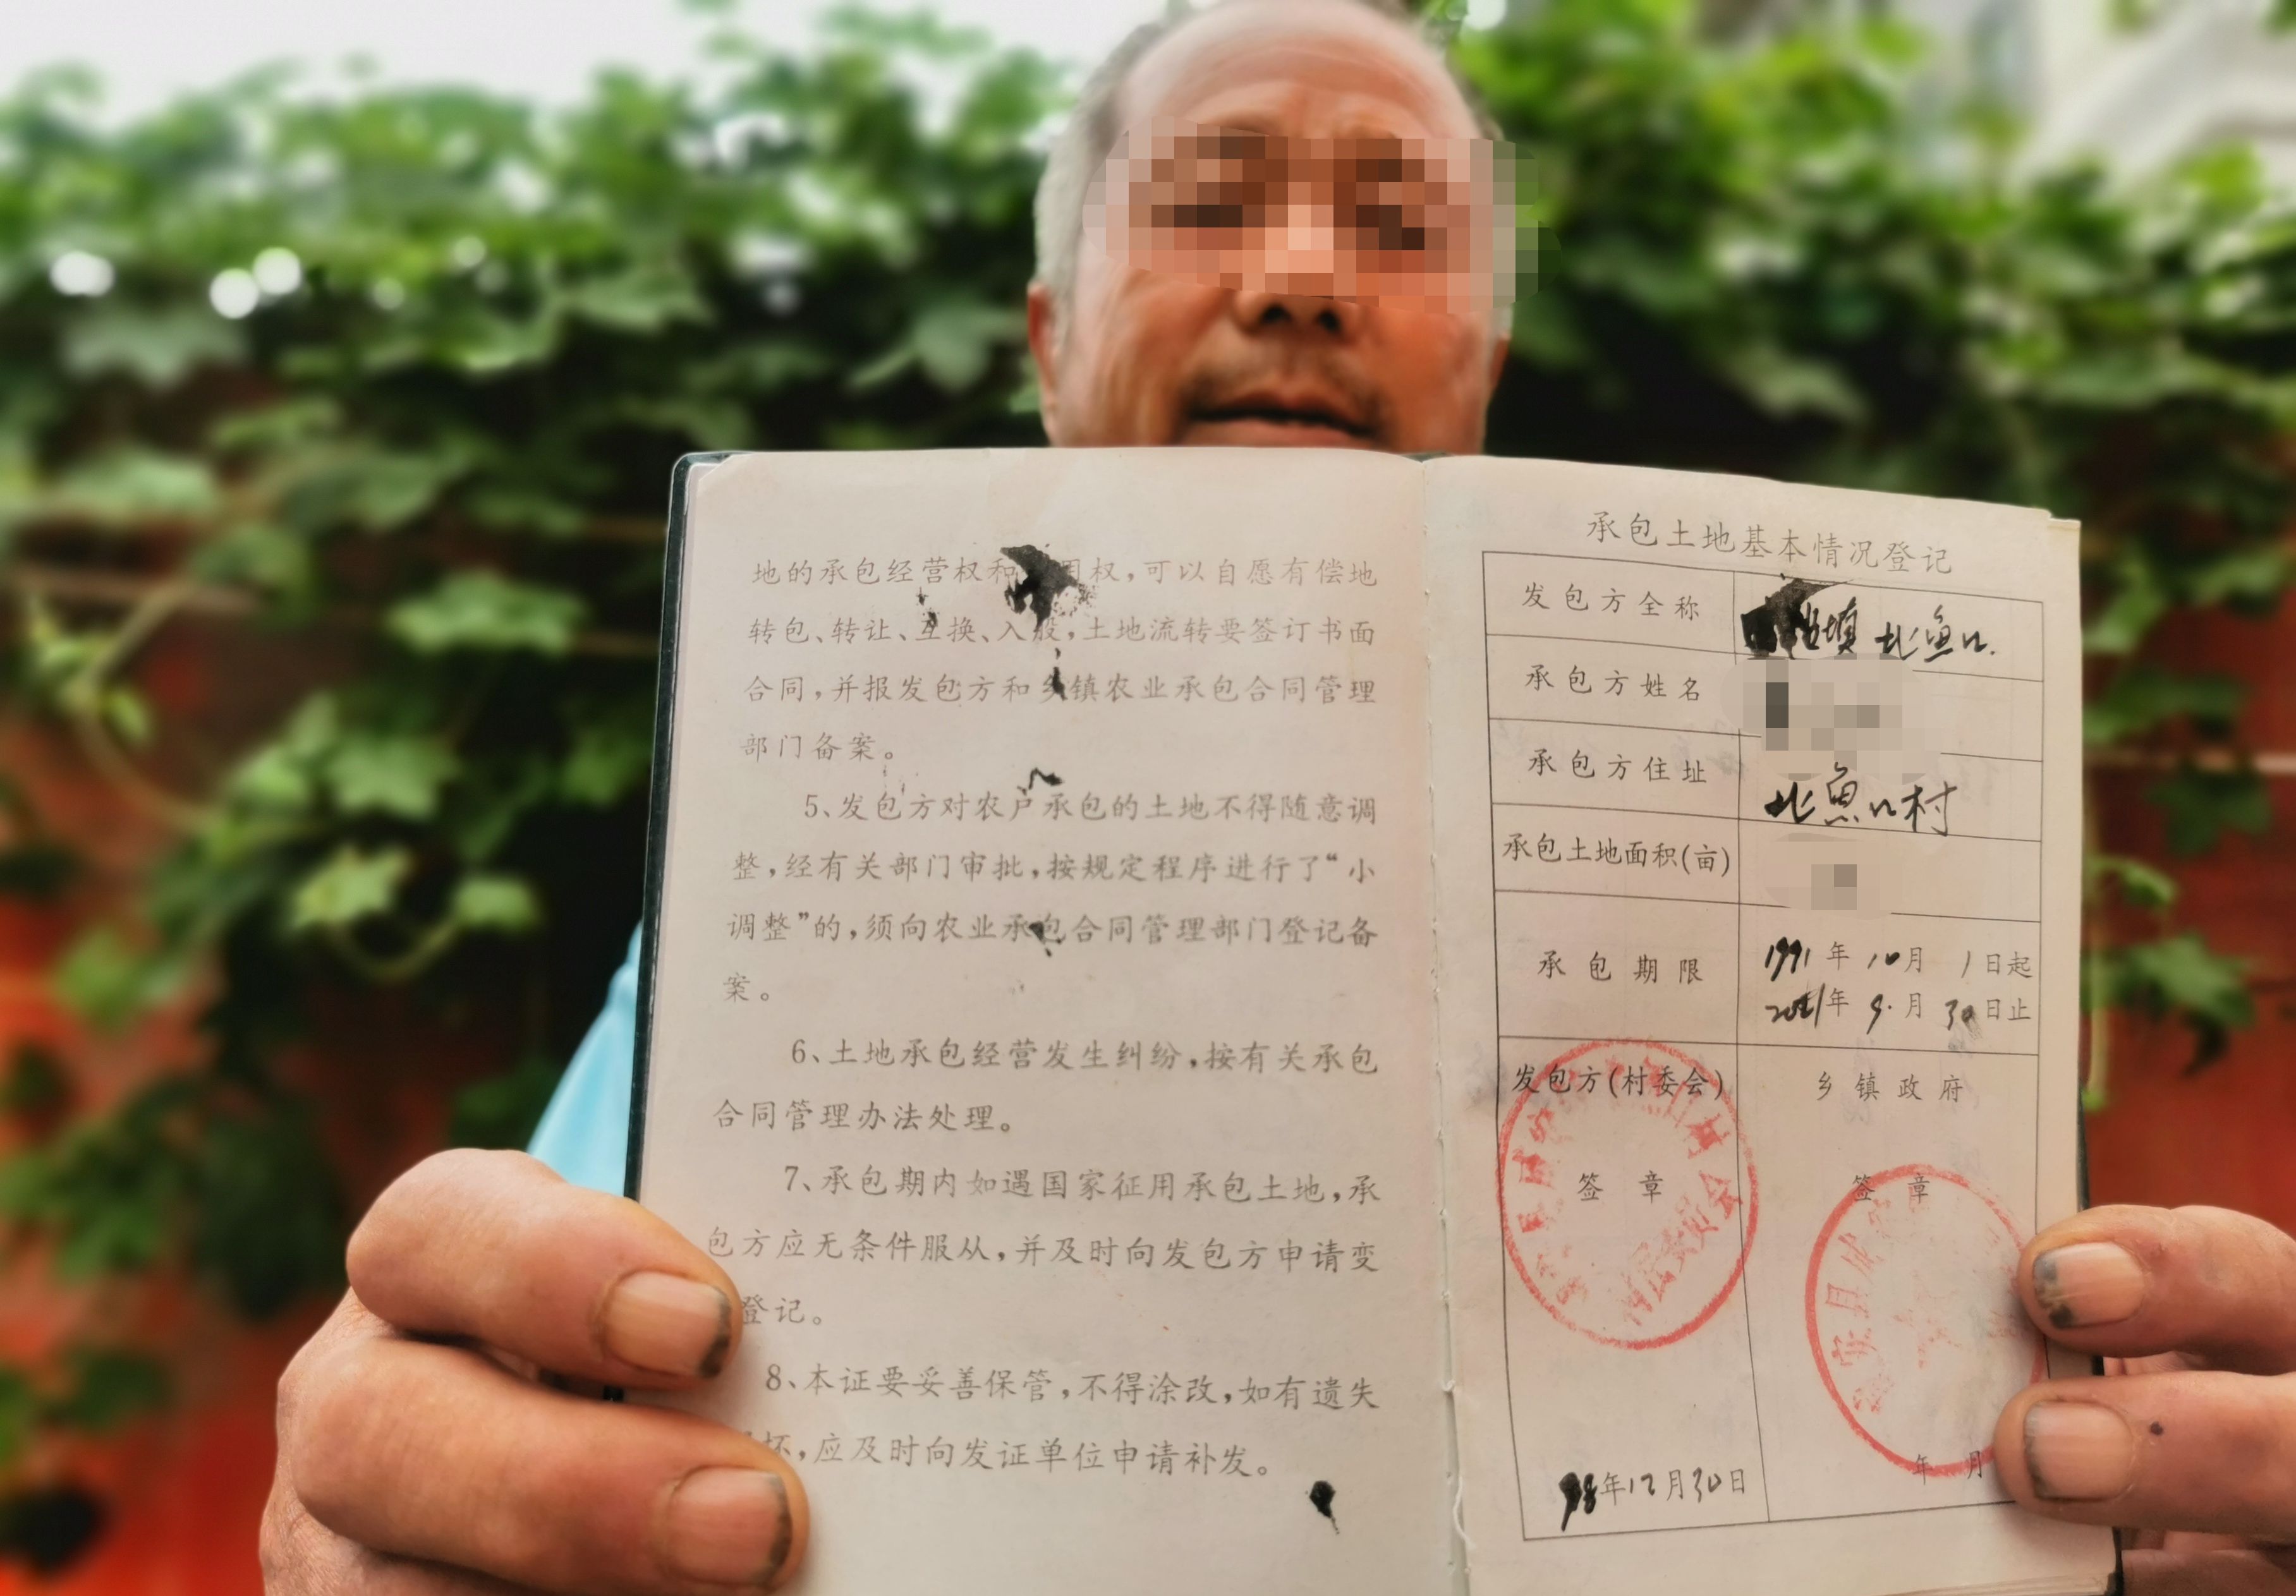 地的承包经营权和 用权,可以自愿有偿地
转包、转让、互换、入股,土地流转要签订书面
合同,并报发包方和乡镇农业承包合同管理
部门备案。
5、发包方对农户承包的土地不得随意调
整,经有关部门审批,按规定程序进行了“小
调整”的,须向农业承包合同管理部门登记备
案。
6、土地承包经营发生纠纷,按有关承包
合同管理办法处理。
7、承包期内如遇国家征用承包土地,承
包方应无条件服从,并及时向发包方申请变
登记。
8、本证要妥善保管,不得涂改,如有遗失
坏,应及时向发证单位申请补发。
承包土地基本情况登记
发包方全称 镇 北鱼口
承包方姓名
承包方住址 北鱼口村
承包土地面积(亩)
承包期限
1991年10月1日起
年9月30日止
发包方(村委会)
签章
村民委员会
98年12月30日
乡镇政府
签章
年 月